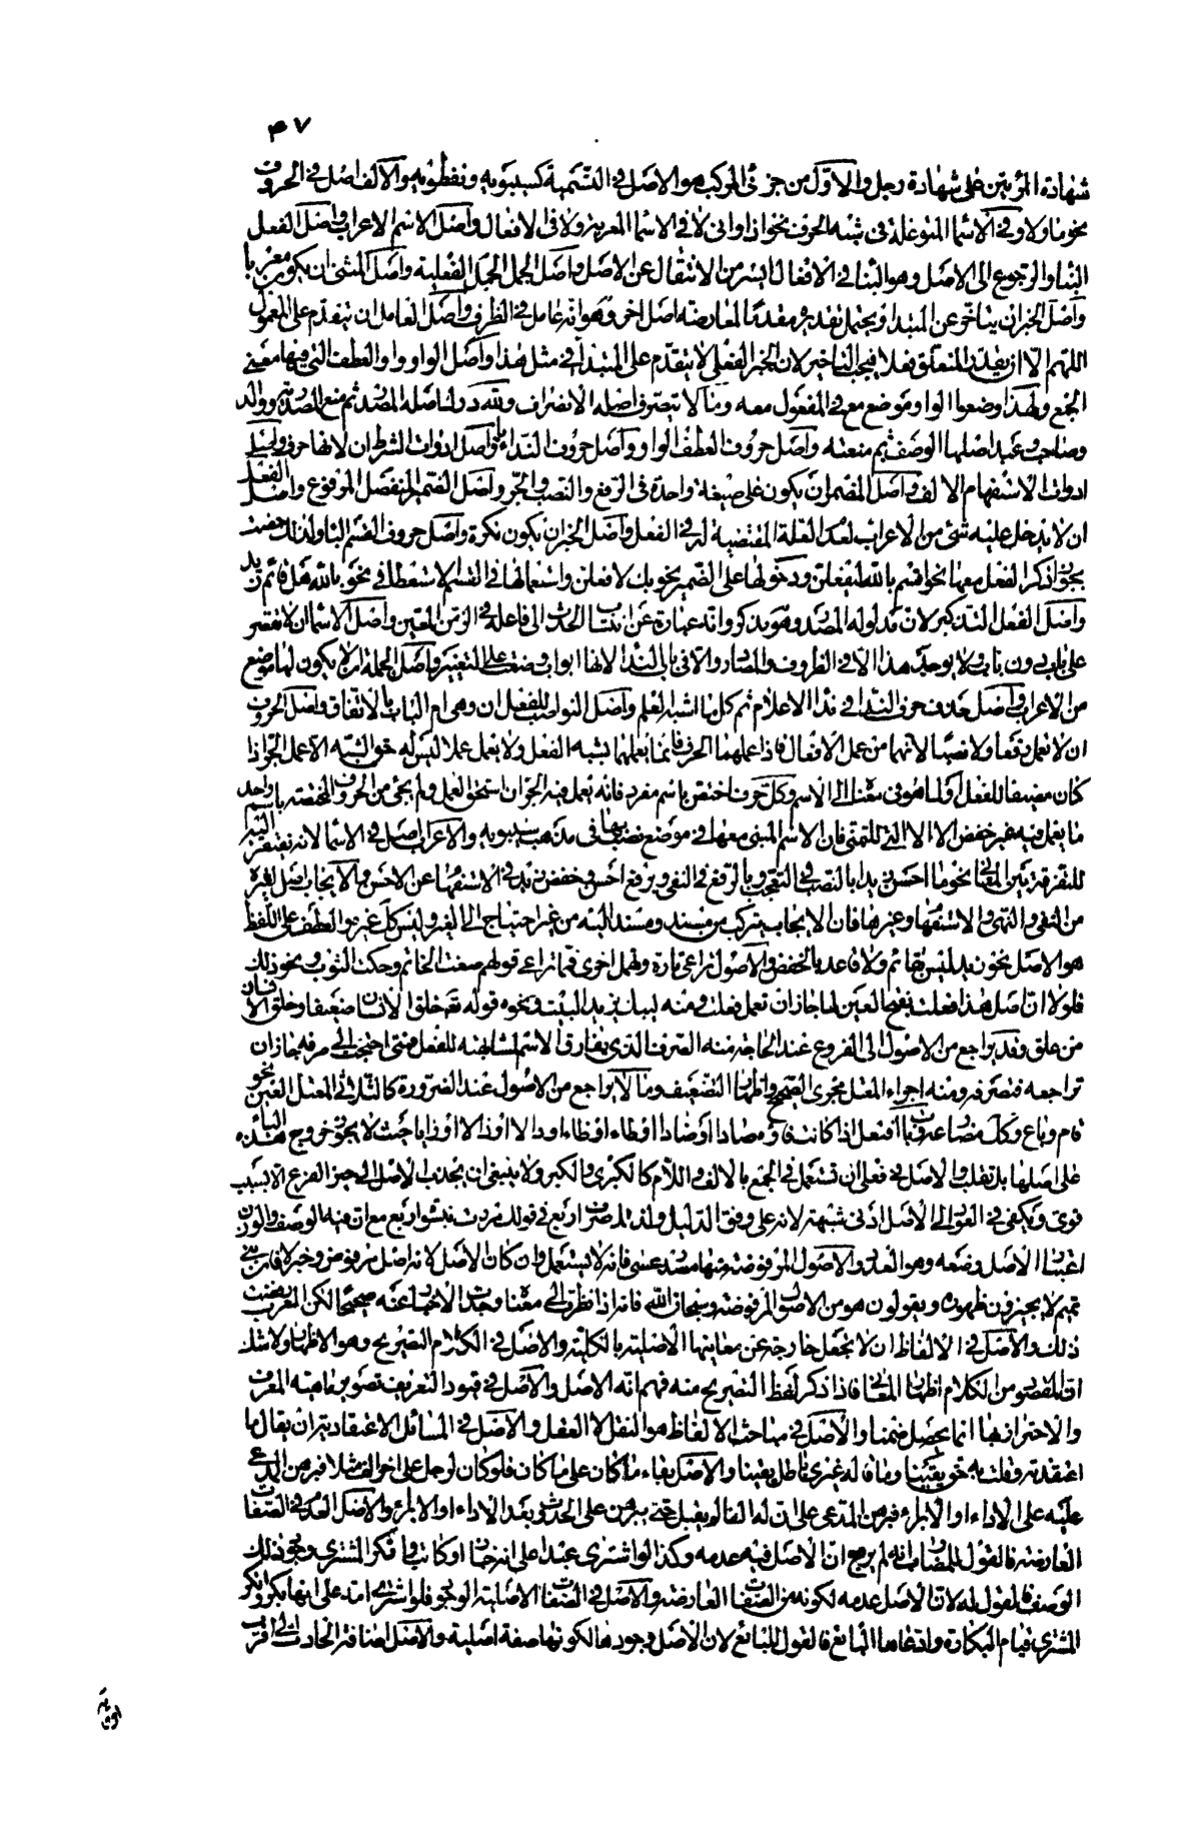 ٤٧
شهادة المرأتين على شهادة رجل والأول من جزئي المركب هو الاصل في التسمية كسيبويه ونفطويه والالف اصل في الحروف
نحو ما ولا وفي الاسماء المتوغلة في شبه الحرف نحو اذا وانى لا في الاسماء المعربة ولا في الافعال واصل الاسم الاعراب واصل الفعل
البناء والرجوع الى الاصل وهو البناء في الافعال ايسر من الانتقال عن الاصل واصل الجمل الجمل الفعلية واصل المثنى ان يكون معربا
واصل الخبر ان يتأخر عن المبتدا ويحتمل تقديره مقدما لمعارضة اصل اخر وهو انه عامل في الظرف واصل العامل ان يتقدم على المعمول
اللهم الا ان يقدر المتعلق فعلا فيجب التاخير لان الخبر الفعلي لا يتقدم على المبتدأ في مثل هذا واصل الواو واو العطف التي فيها معنى
الجمع ولهذا وضعوا الواو موضع مع في المفعول معه ومما لا ينصرف اصله الانصراف ولله درك اصله المصدر ثم منع المصدرية ووالد
وصاحب وعبد اصلها الوصف ثم منعته واصل حروف العطف الواو واصل حروف النداء يا واصل ادوات الشرط ان لانها حرف واصل
ادوات الاستفهام الالف واصل المضمر ان يكون على صيغة واحدة في الرفع والنصب والجر واصل الضمير المنفصل المرفوع واصل الفعل
ان لا يدخل عليه شئ من الاعراب لعدم العلة المقتضية له في الفعل واصل الخبر ان يكون نكرة واصل حروف القسم الباء ولذلك خصت
بجواز ذكر الفعل معها نحو اقسم بالله لتفعلن ودخولها على الضمير نحو بك لافعلن واستعمالها في القسم الاستعطافي نحو بالله هل قام زيد
واصل الفعل التذكير لان مدلوله المصدر وهو مذكر وانه عبارة عن انتساب الحدث الى فاعله في الزمن المعين واصل الاسماء ان لا تقصر
على باب دون باب ولا يوجد هذا الا في الظروف والمصادر والا في باب النداء لانها ابواب وضعت على التغيير واصل الجملة ان لا يكون لها موضع
من الاعراب واصل حذف حرف النداء في نداء الاعلام ثم كل ما اشبه العلم واصل النواصب للفعل ان وهي ام الباب بالاتفاق واصل الحروف
ان لا تعمل رفعا ولا نصبا لانهما من عمل الافعال فاذا عملهما الحرف فانما يعملهما بشبه الفعل ولا يعمل عملا ليس له حق الشبه الا عمل الجر اذا
كان مضيفا للفعل او لما هو في معناه الى الاسم وكل حرف اختص باسم مفرد فانه يعمل فيه الجر ان استحق العمل ولم يجئ من الحروف المختصة باسم واحد
ما يعمل فيه غير خفض الا الا التي للتمنى فان الاسم المبنى معها في موضع نصب بها في مذهب سيبويه والاعراب اصل في الاسماء لانه يفتقر اليه
للتفرقة بين المعاني نحو ما احسن زيدا بالنصب في التعجب وبالرفع في النفي وبرفع احسن وخفض زيد في الاستفهام عن الاحسن والايجاب اصل لغيره
من النفي والنهي والاستفهام وغيرها فان الايجاب يتركب من مسند ومسند اليه من غير احتياج الى الغير وليس كل غيره والعطف على اللفظ
هو الاصل نحو زيد ليس بقائم ولا قاعد بالخفض والاصول تراعى تارة وتهمل اخرى فمما تراعى قولهم صغت الخاتم وحكت الثوب ونحو ذلك
فلولا ان اصل هذا فعلت بفتح العين لما جاز ان تعمل فعلت ومنه لبيك يزيد البيت ونحوه قوله تعالى خلق الانسان ضعيفا وخلق الانسان
من علق وقد يراجع من الاصول الى الفروع عند الحاجة منه الصرف الذي يفارق الاسم لمشابهته للفعل فمتى احتجت الى صرفه جاز ان
تراجعه فتصرفه ومنه اجراء المعتل مجرى الصحيح واظهار التضعيف وما لا يراجع من الاصول عند الضرورة كالثلاثي المعتل العين نحو
قام وباع وكل مضارع باب افتعل اذا كانت فاؤه صادا او ضادا او طاء او ظاء او دالا او ذالا او زايا حيث لا يجوز خروج هذه التاء
على اصلها بل تقلب والاصل في فعلى ان تستعمل في الجمع بالالف واللام كالكبرى والكبر ولا ينبغي ان يجذب الاصل الى حيز الفرع الا بسبب
قوى ويكفي في العود الى الاصل ادنى شبهة لانه على وفق الدليل ولذلك صرف اربع في قولك مررت بنسوة اربع مع ان فيه الوصف والوزن
اعتبارا لاصل وضعه وهو العدد والاصول المرفوضة منها مصدر عسى فانه لا يستعمل وان كان الاصل لانه اصل مرفوض وخبر لا فان بني
تميم لا يجيزون ظهوره ويقولون هو من الاصول المرفوضة وسبحان الله فانه اذا نظرت الى معناه وجدت الاخبار عنه صحيحا لكن العرب رفضت
ذلك والاصل في الالفاظ ان لا تجعل خارجة عن معانيها الاصلية بالكلية والاصل في الكلام التصريح وهو الاظهار ولا شك
ان المقصود من الكلام اظهار المعاني فاذا ذكر لفظ التصريح منه فهم انه الاصل والاصل في قيود التعريف تصوير ماهية المعرف
والاحتراز بها انما يحصل ضمنا والاصل في مباحث الالفاظ هو النقل لا العقل والاصل في المسائل الاعتقادية ان يقال ما
اعتقدته وقلت به حق يقينا وما قاله غيري باطل يقينا والاصل بقاء ما كان على ما كان فلو كان لرجل على اخر الف مثلا فبرهن المدعى
عليه على الاداء او الابراء فبرهن المدعى على ان له الفا لم يقبل حتى يبرهن على الحدوث بعد الاداء او الابراء والاصل العدم في الصفات
العارضة فالقول للمضارب انه لم يربح لان الاصل فيه عدمه وكذا لو اشترى عبدا على انه خباز او كاتب وانكر المشترى وجود ذلك
الوصف فالقول له لان الاصل عدمه لكونه من الصفات العارضة والاصل في الصفات الاصلية الوجود فلو اشترى امة على انها بكر وانكر
المشترى قيام البكارة وادعاها البائع فالقول للبائع لان الاصل وجودها لكونها صفة اصلية والاصل اضافة الحادث الى اقرب
اوقاته